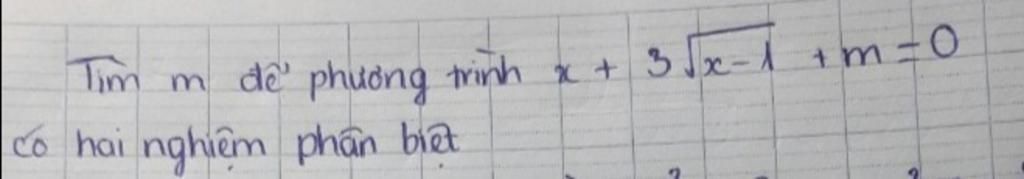 Tìm m để phương trình x + 3√(x-1) + m = 0
có hai nghiệm phân biệt